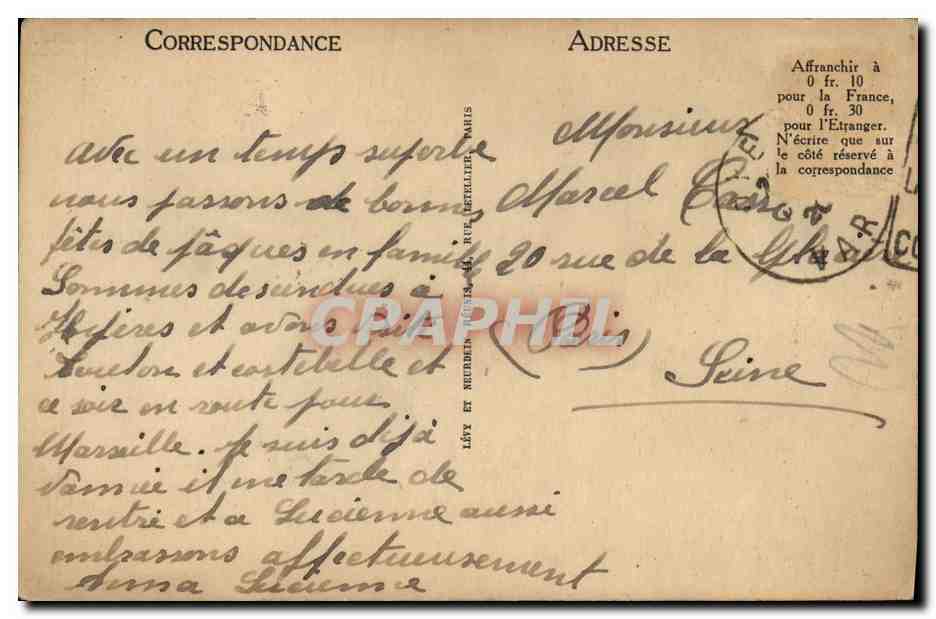 CORRESPONDANCE
avec un temps superbe
nous passons de bonnes
fêtes de pâques en famille
Sommes desendues à
Hyères et avons visité
Toulon et costebelle et
ce soir en route pour
Marseille. Je suis déjà
il me tarde de
rentré et a Lucienne aussi
embrassons affectueusement
Lucienne
LÉVY ET NEURDEIN RÉUNIS, 44, RUE LETELLIER, PARIS
ADRESSE
Affranchir à
0 fr. 10
pour la France,
0 fr. 30
pour l'Etranger.
N'écrire que sur
le côté réservé à
la correspondance
Monsieur
Marcel
20 rue de la
(Bis)
Seine
VAR
CARAPHIL